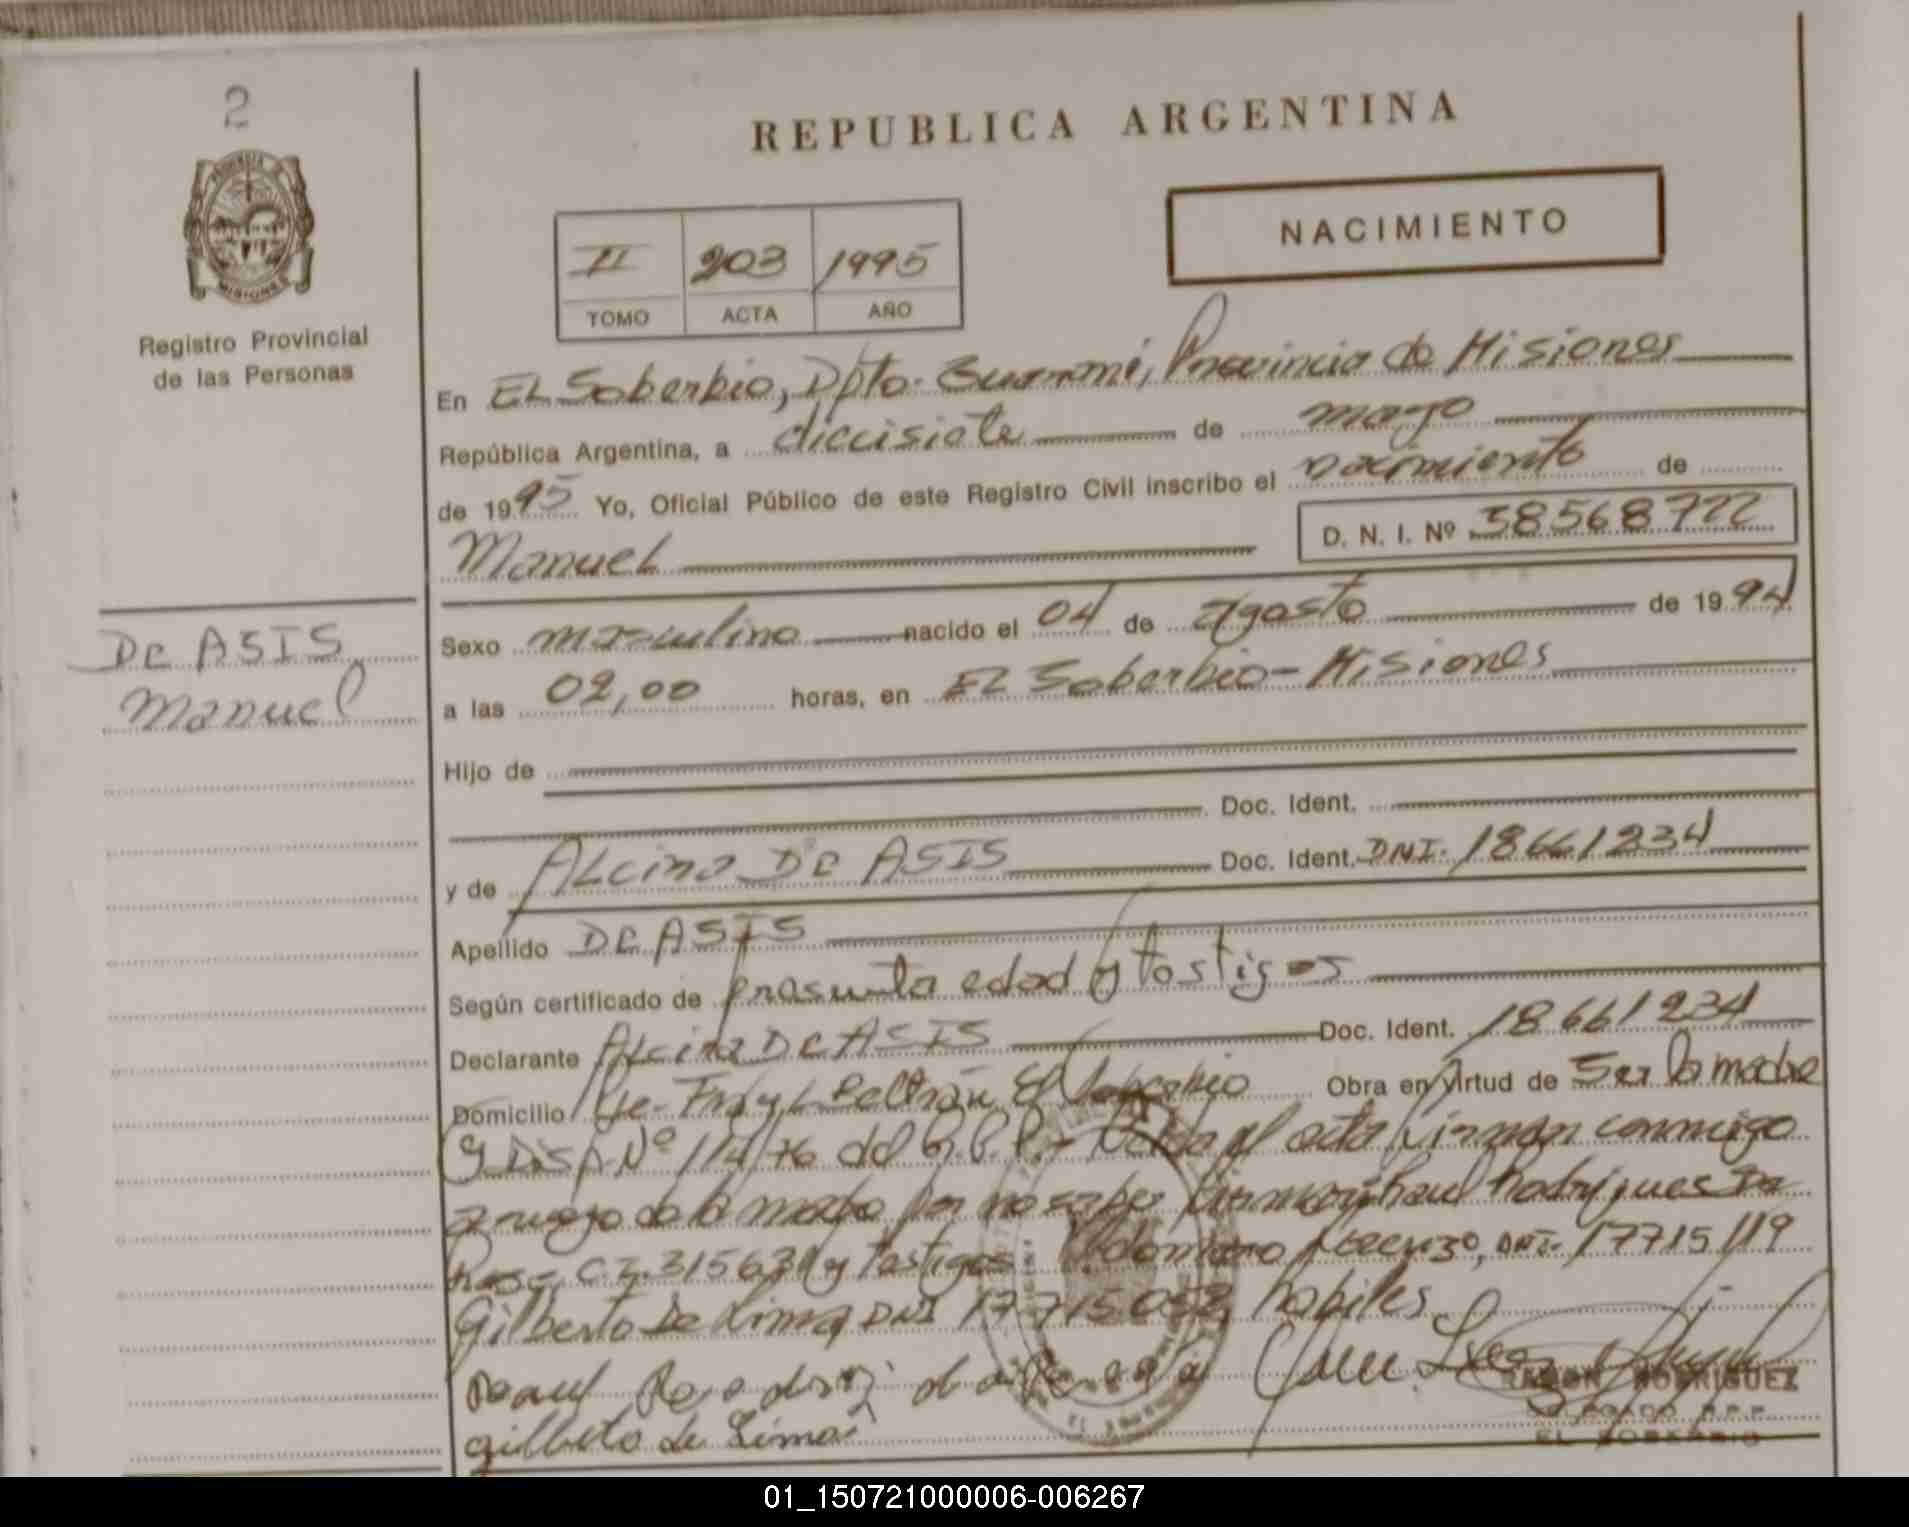 2
REPUBLICA ARGENTINA
NACIMIENTO
II 203 1995
TOMO ACTA AÑO
PROVINCIA DE
MISIONES
Registro Provincial
de las Personas
En EL Soberbio, Dpto. Guaraní, Provincia de Misiones
República Argentina, a diecisiete de mayo
de 1995 Yo, Oficial Público de este Registro Civil inscribo el nacimiento de
Manuel D. N. I. Nº 38568722
De ASIS
Manuel
Sexo masculino nacido el 04 de Agosto de 1994
a las 02,00 horas, en EL Soberbio - Misiones
Hijo de
Doc. Ident.
y de ALcina De ASIS Doc. Ident. DNI. 18661234
Apellido De ASIS
Según certificado de presunta edad y testigos
Declarante ALcina De ASIS Doc. Ident. 18661234
Domicilio Fray L Beltrán El Soberbio Obra en virtud de Ser la madre
y Disp. Nº 114/76 del R.P.P. - Leída el acta firman conmigo
a ruego de la madre por no saber firmar Raul Rodrigues Da
Rosa, C.I. 315631 y testigos DNI. 17715119
Gilberto De Lima, DNI 17715052 habiles
Raul Rodrig da Rosa
gilberto de Lima
RAMON RODRIGUEZ
R.P.P.
EL SOBERBIO
01_150721000006-006267